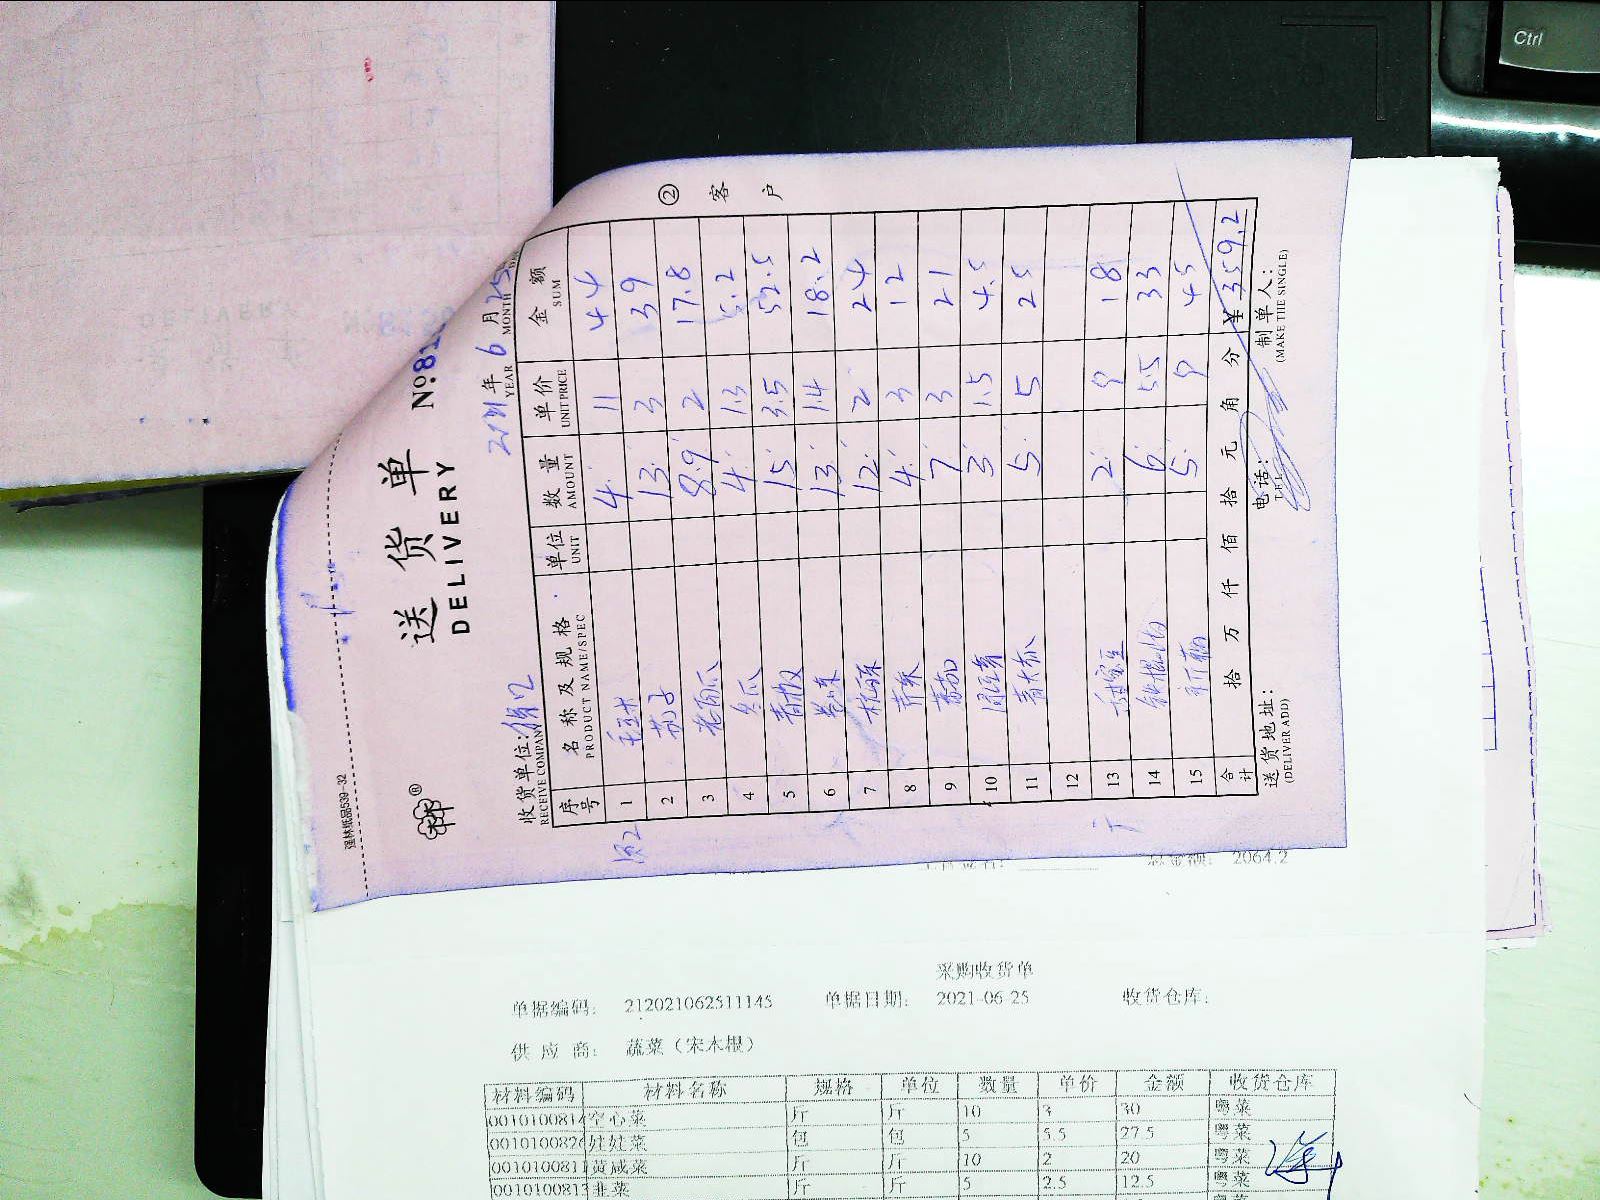 Ctrl
强林纸品539-32
② 客户
送货单
DELIVERY
№:81
收货单位:
RECEIVE COMPANY
2021年 6月 25
YEAR MONTH
序号 名称及规格 单位 数量 单价 金额
PRODUCT NAME/SPEC UNIT AMOUNT UNIT PRICE SUM
1 毛豆米 4 11 44
2 茄子 13 3 39
3 老南瓜 8.9 2 17.8
4 冬瓜 4 1.3 5.2
5 青椒 15 3.5 52.5
6 13 1.4 18.2
7 12 2 24
8 芹菜 4 3 12
9 蕃茄 7 3 21
10 3 1.5 4.5
11 5 5 25
12
13 2 9 18
14 6 5.5 33
15 5 9 45
合计 拾 万 仟 佰 拾 元 角 分 ¥ 359.2
送货地址: 电话: 制单人:
(DELIVER ADD) TEL (MAKE THE SINGLE)
总金额: 2064.2
采购收货单
单据编码: 212021062511145 单据日期: 2021-06-25 收货仓库:
供应商: 蔬菜(宋木根)
材料编码 材料名称 规格 单位 数量 单价 金额 收货仓库
0010100814 空心菜 斤 斤 10 3 30 粤菜
0010100826 娃娃菜 包 包 5 5.5 27.5 粤菜
0010100811 黄咸菜 斤 斤 10 2 20 粤菜
0010100813 韭菜 斤 斤 5 2.5 12.5 粤菜